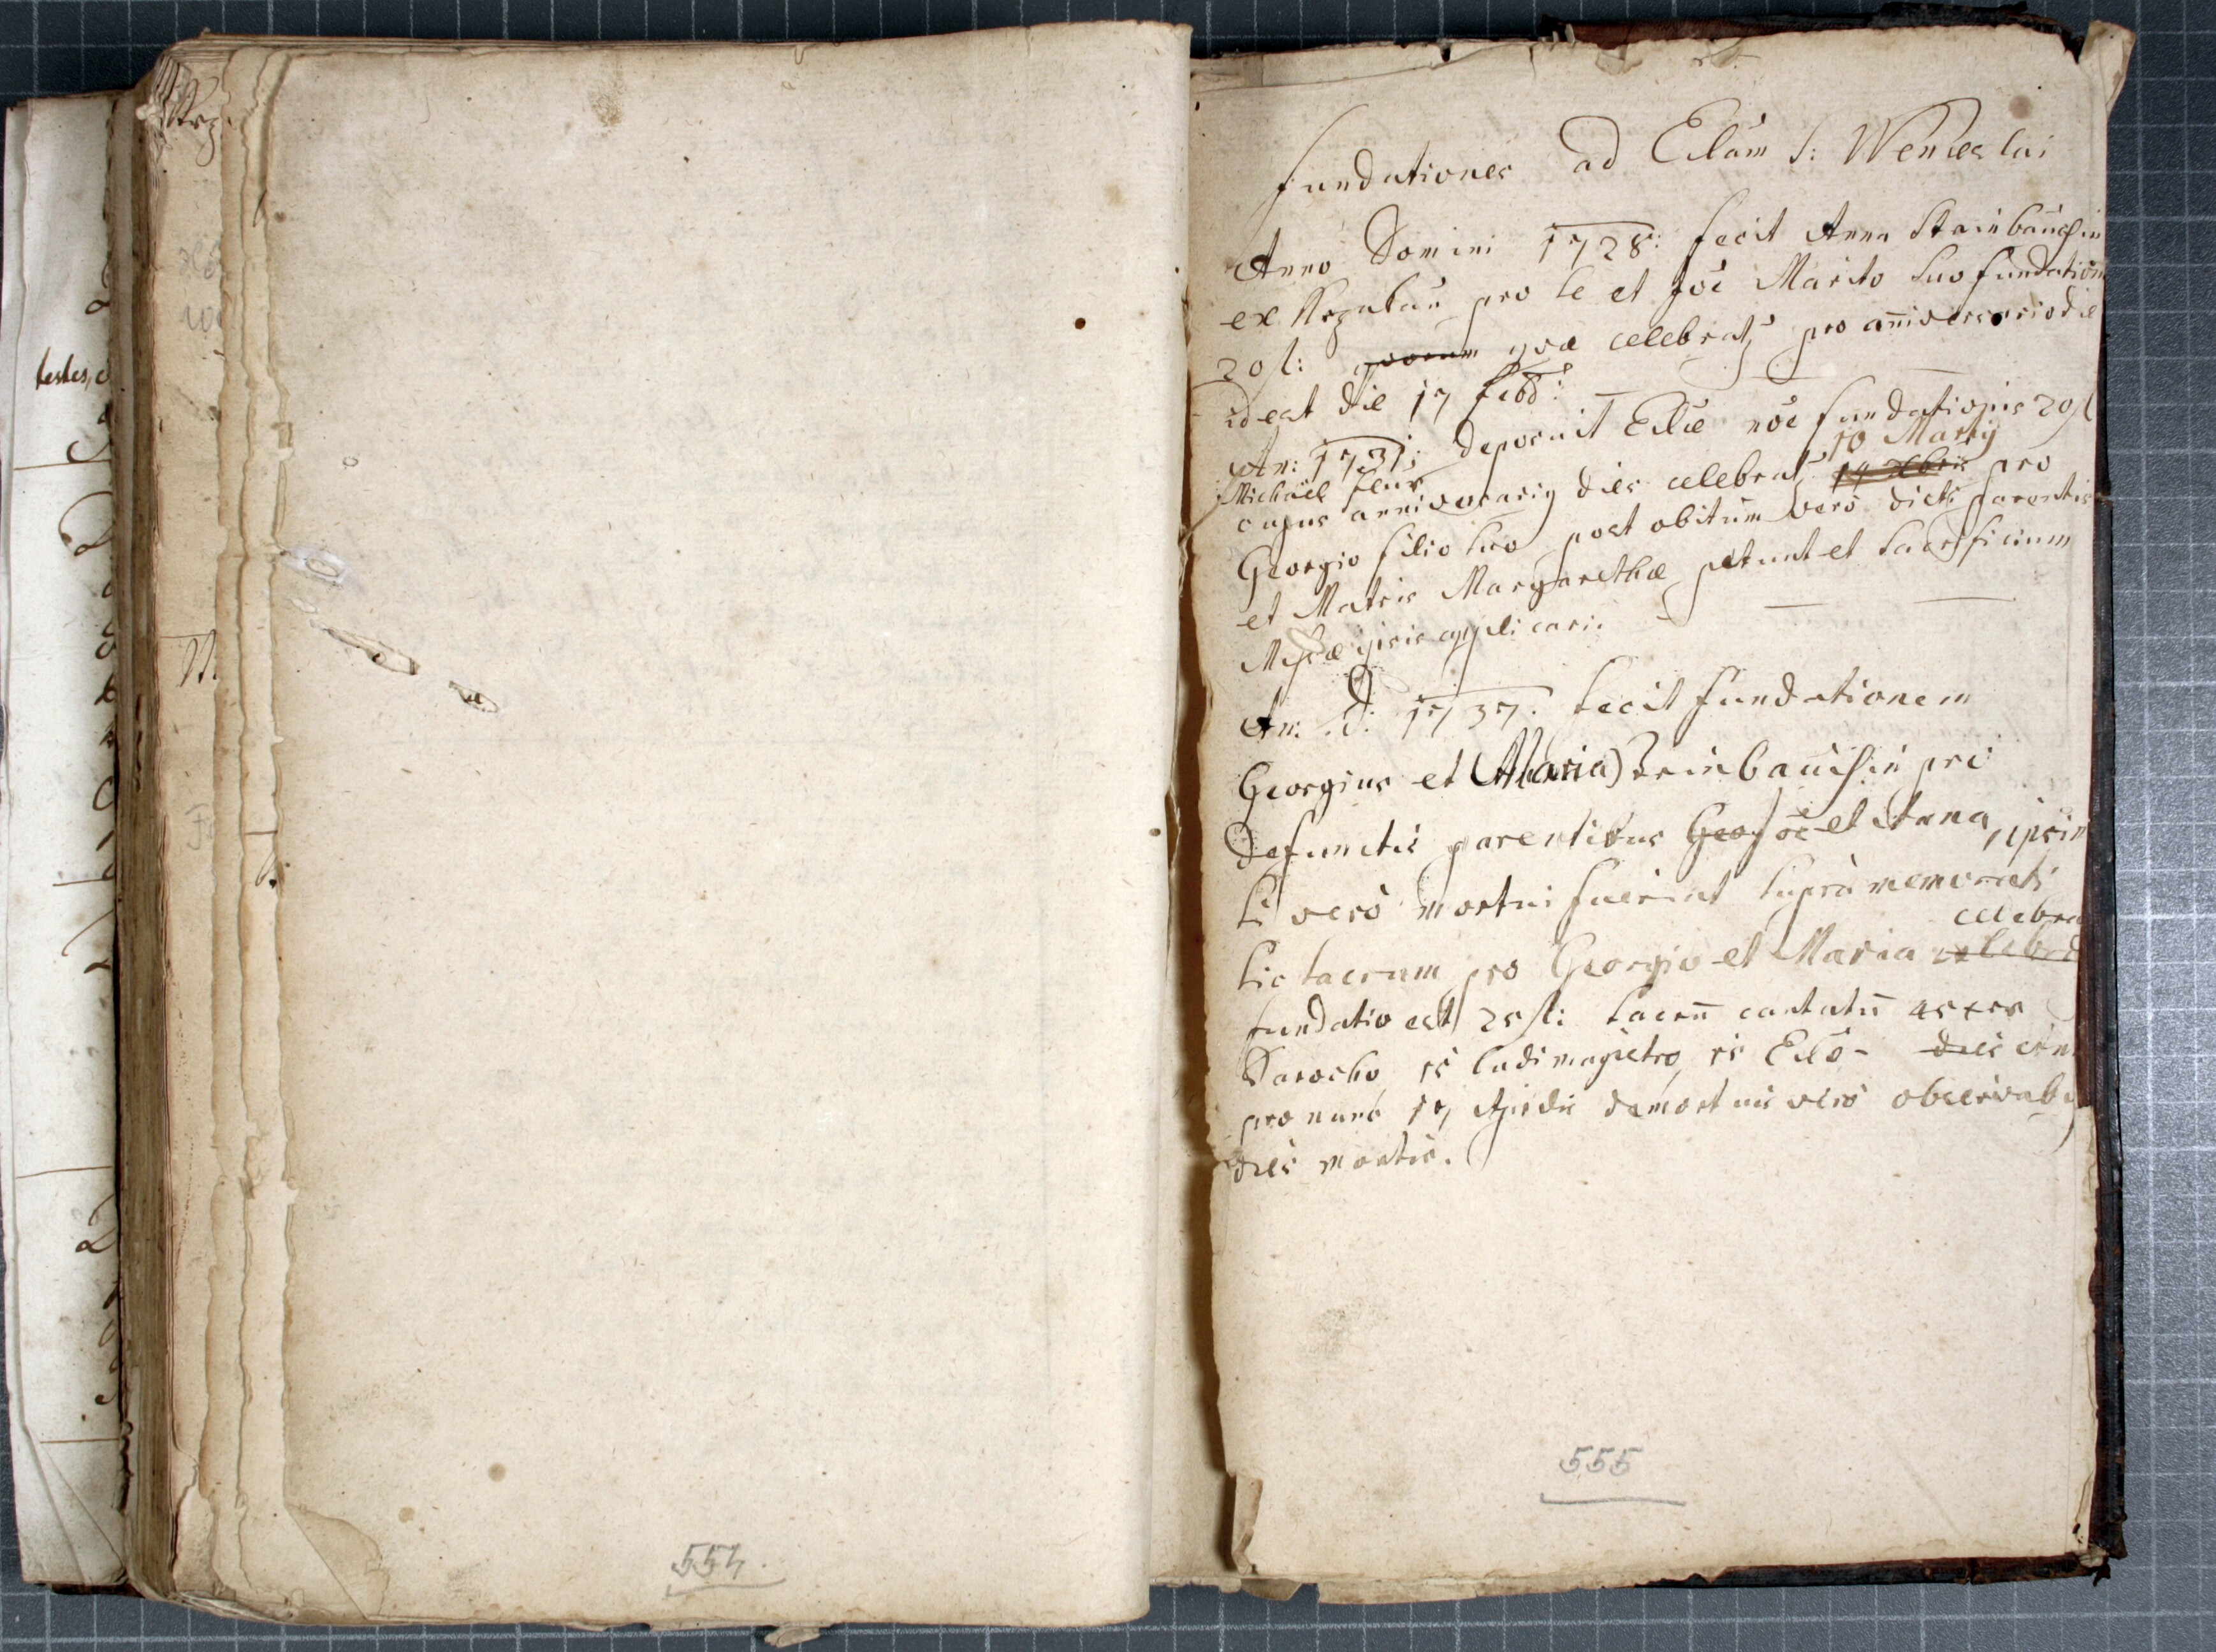 testes, c
Fundationes ad Eclam S: Wenceslai
Anno Domini 1728: fecit Anna Stainbauchin
ex pro se et Joe Marito suo fundation
20 fl: quorum quae celebrat pro anniversario die
id est die 17 febr:
An: 1731: deposuit Eclae noe fundationis 20 fl
Michaël
10 Martij
cujus anniversarij dies celebrat 14 Xbris pro
Georgio filio suo post obitum vero dicti parentis
et Matris Margarethae petunt et sacrificium
Missae ipsis applicari.
An: D: 1737. fecit fundationem
Georgius et Maria Steinbauchin pri
defunctis parentibus Geo Joe et Anna, ipsin
si vero mortui fuerint supra memorati
celebra
sic sacrum pro Georgio et Maria celebrat
fundatio est 25 fl: sacru cantatu 45 xrs
Parocho 15 ludimagistro 15 Ecle dies An
pro nunc 17 Aprilis demortuis vero observab
dies mortis.
554.
555